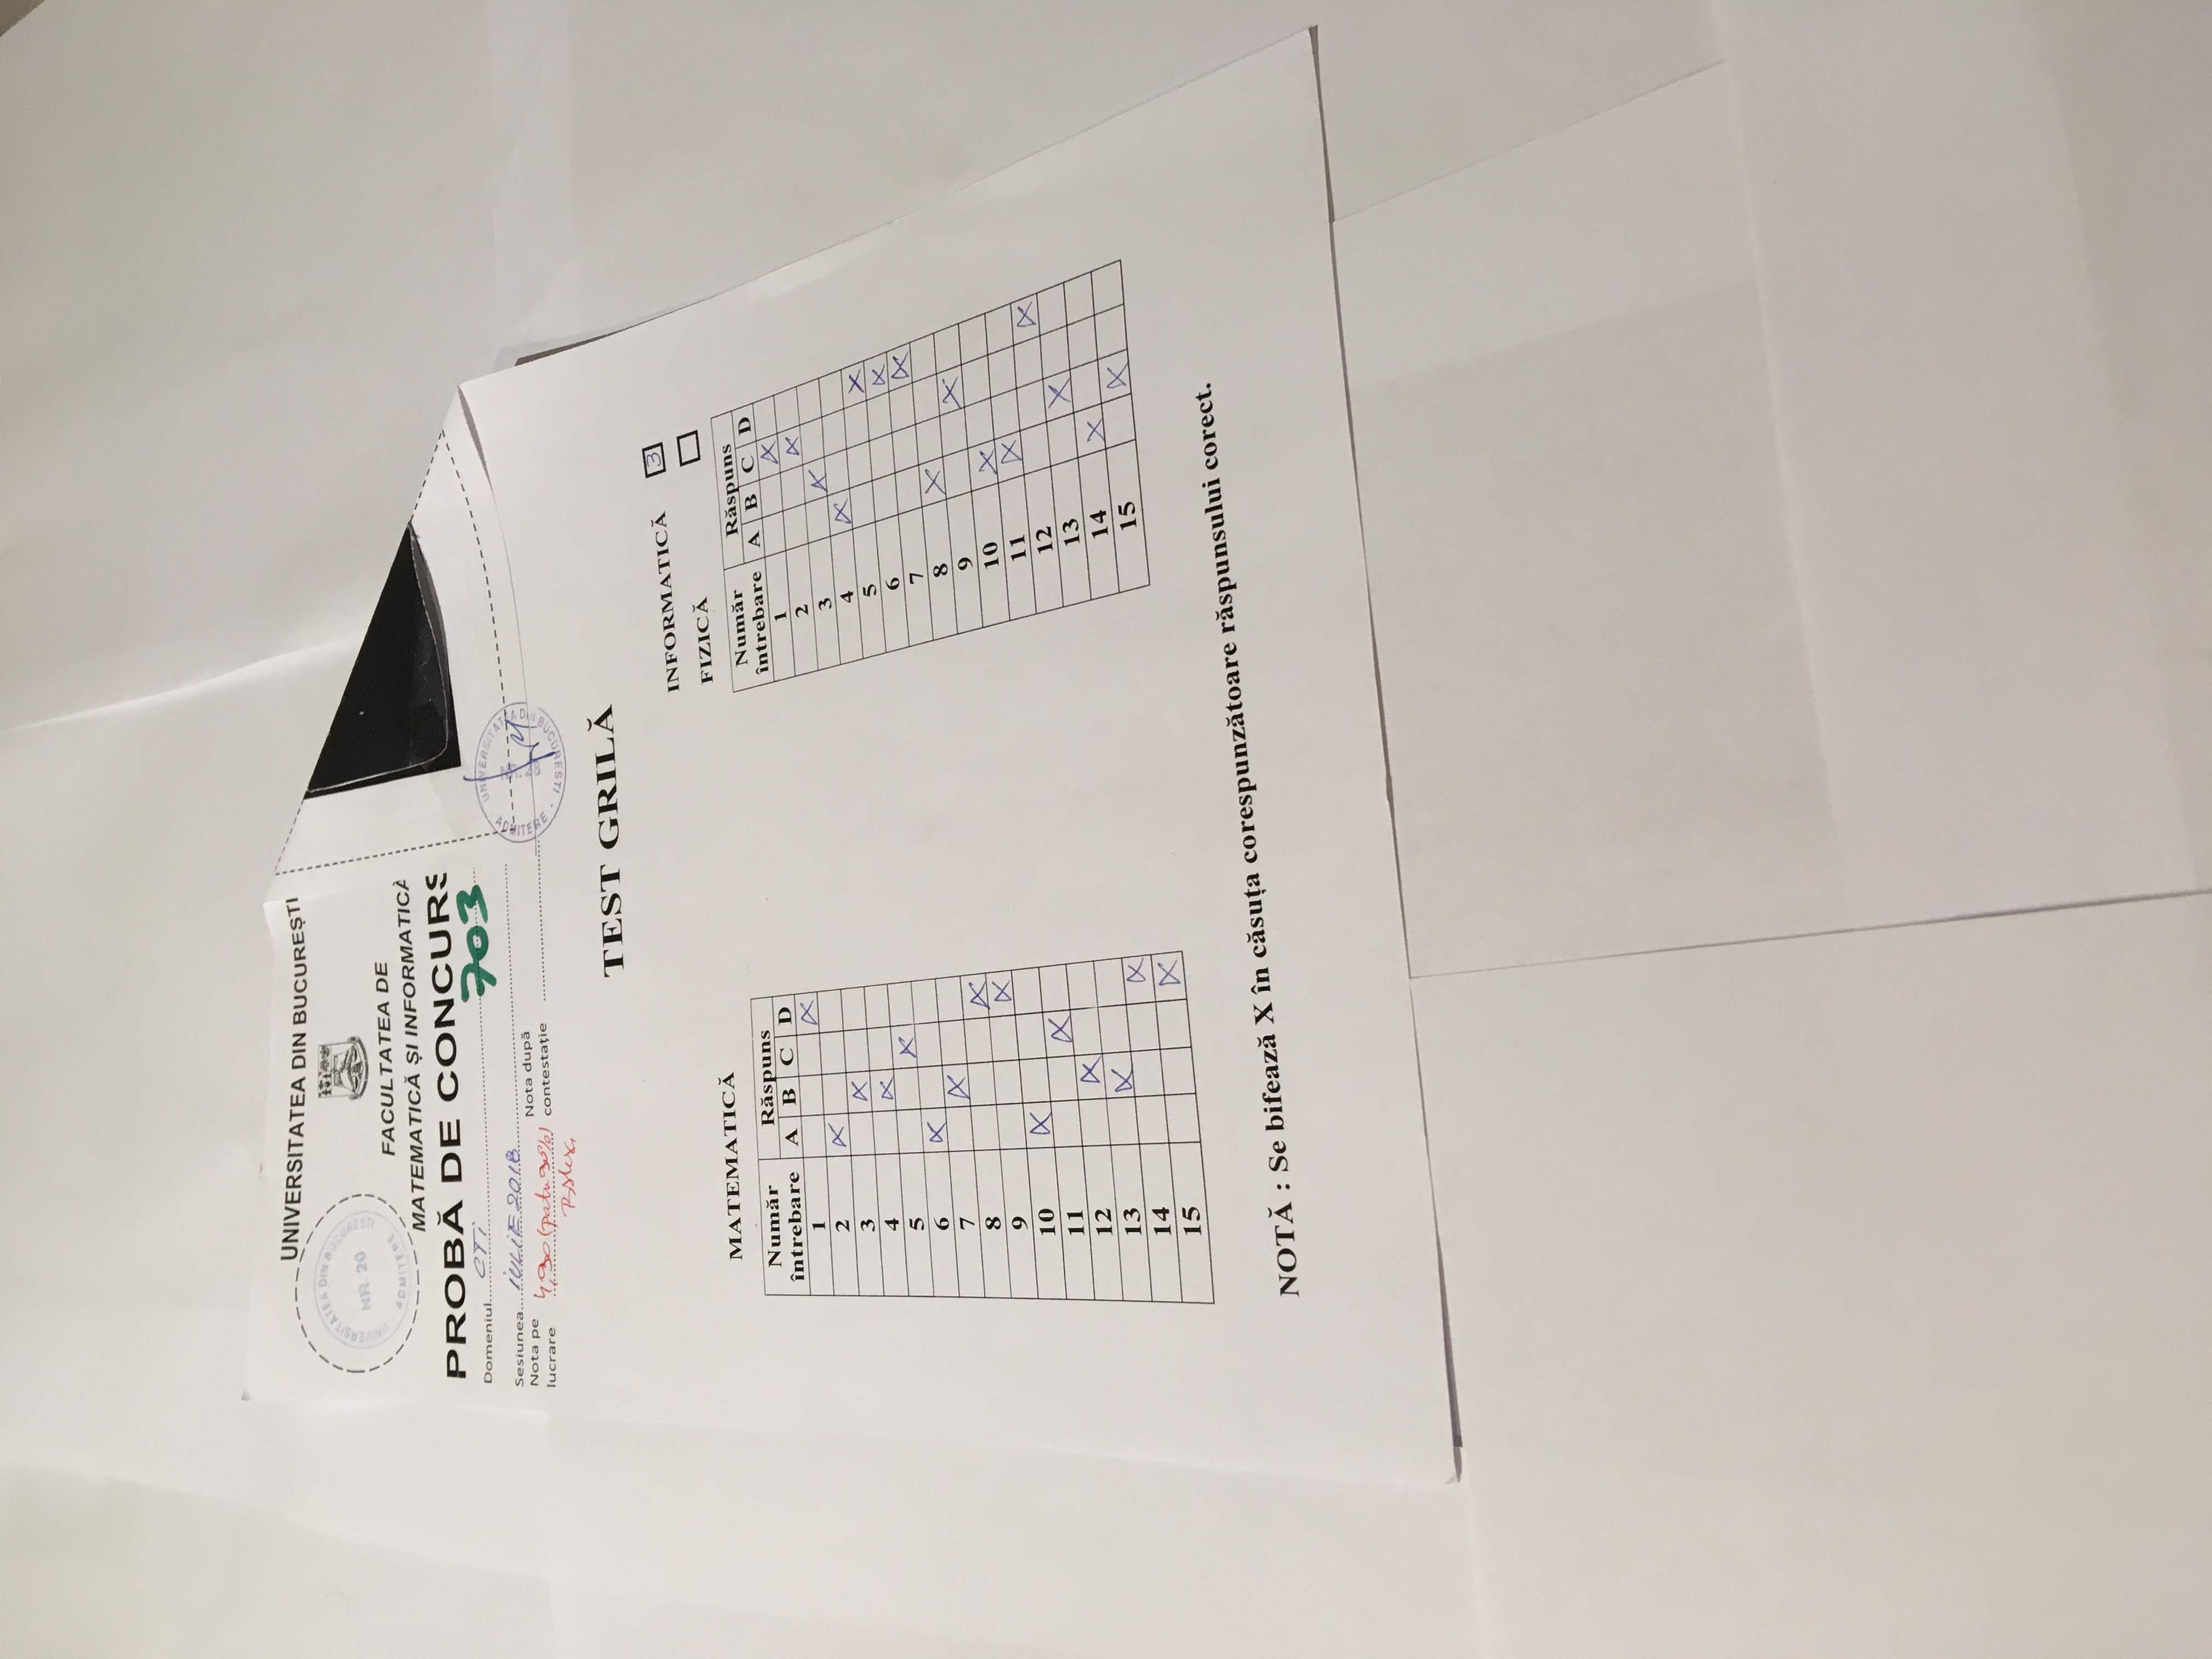 UNIVERSITATEA DIN BUCUREȘTI
UNIVERSITATEA DIN BUCUREȘTI
NR. 20
ADMITERE
FACULTATEA DE
MATEMATICĂ ȘI INFORMATICĂ
PROBĂ DE CONCURS
Domeniul CTi
703
Sesiunea iULiE 2018
Nota pe lucrare 4,90 (patru 90%)
Nota după contestație
UNIVERSITATEA DIN BUCUREȘTI
ADMITERE
TEST GRILĂ
INFORMATICĂ 3
FIZICĂ
MATEMATICĂ
Număr întrebare Răspuns
A B C D
1 X
2 X
3 X
4 X
5 X
6 X
7 X
8 X
9 X
10 X
11 X
12 X
13 X
14 X
15 X
Număr întrebare Răspuns
A B C D
1 X
2 X
3 X
4 X
5 X
6 X
7 X
8 X
9 X
10 X
11 X
12 X
13 X
14 X
15 X
NOTĂ : Se bifează X în căsuța corespunzătoare răspunsului corect.